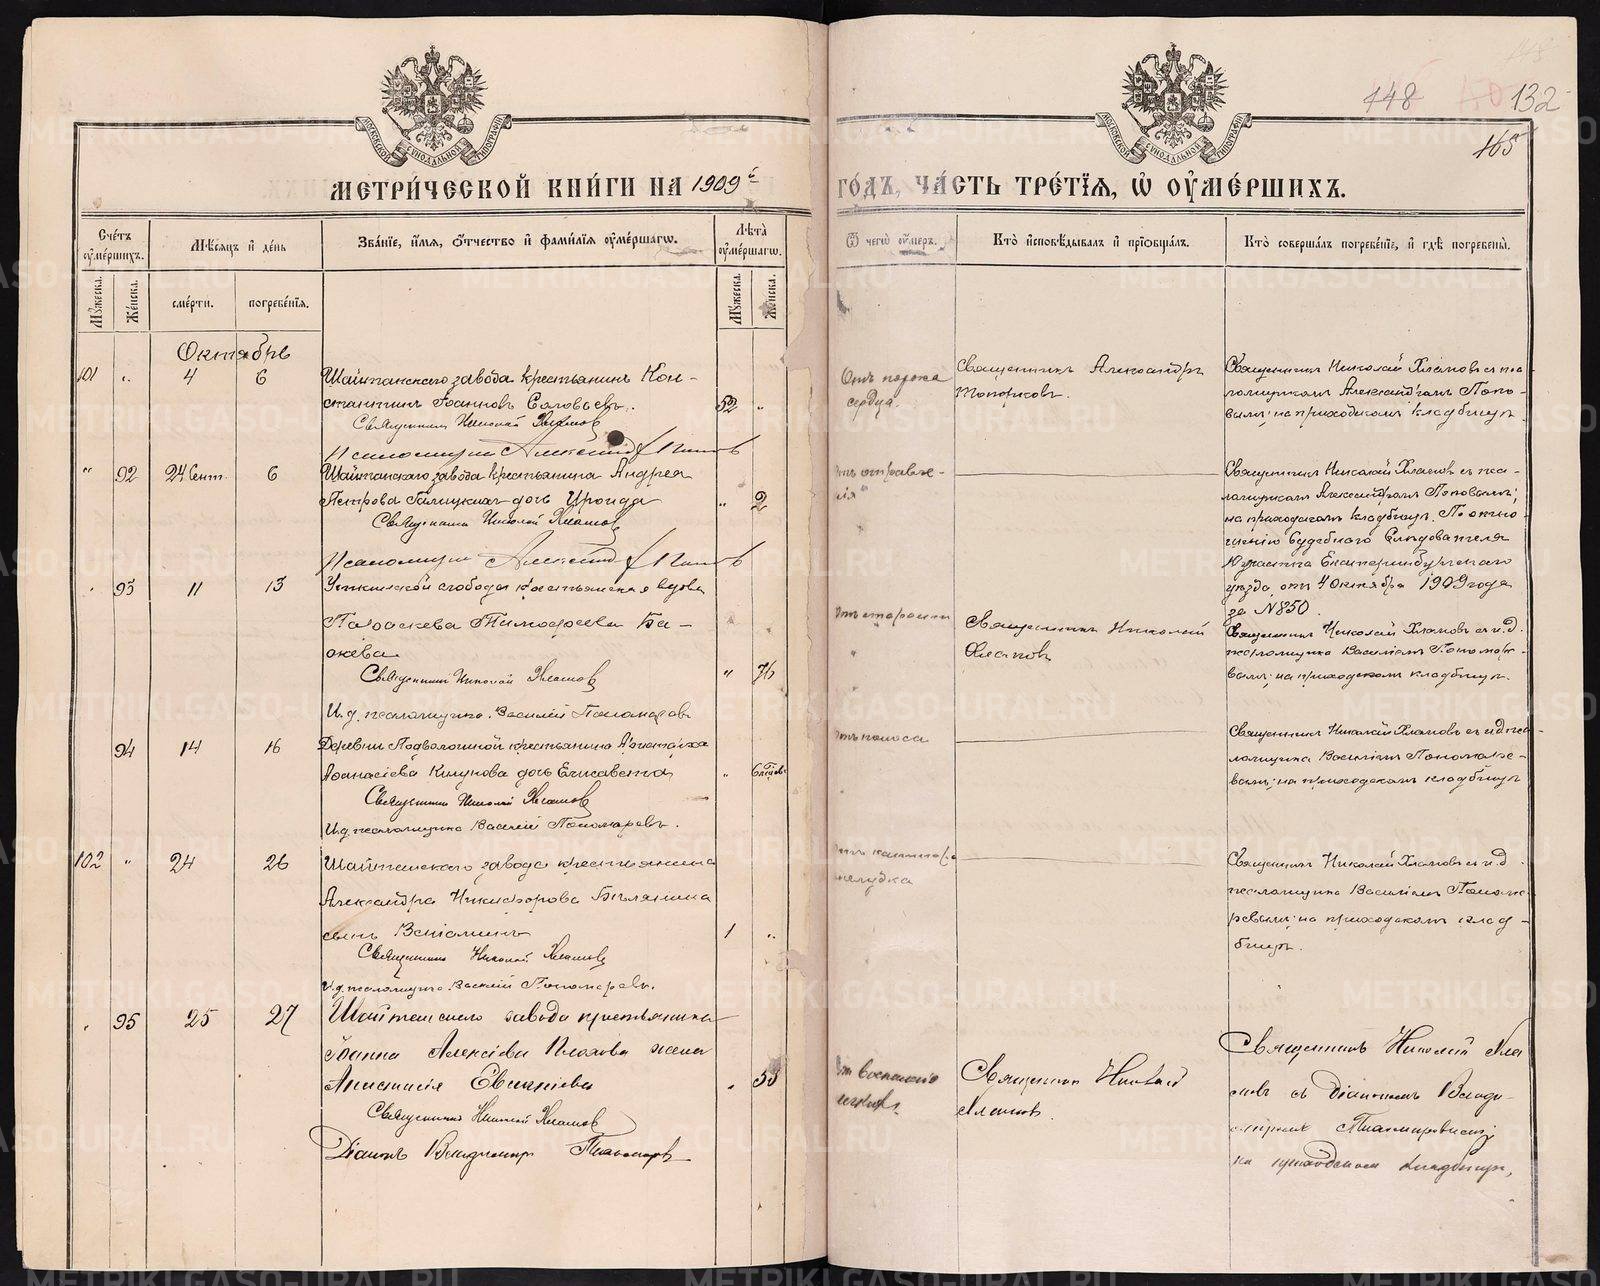 148 132
165
МОСКОВСКОЙ СѴНОДАЛЬНОЙ ТИПОГРАФІИ
МОСКОВСКОЙ СѴНОДАЛЬНОЙ ТИПОГРАФІИ
МЕТРИ́ЧЕСКОЙ КНИ́ГИ НА 1909 й ГО́ДЪ, ЧА́СТЬ ТРЕ́ТЇѦ, Ѡ҆ ОУ҆МЕ́РШИХЪ.
Счетъ оумершихъ.
Мѣсяцъ и день
Званіе, имя, отчество и фамилія оумершагѡ.
Лѣта оумершагѡ.
Ѿ чегѡ оумеръ.
Кто исповѣдывалъ и пріобщалъ.
Кто совершалъ погребеніе, и гдѣ погребены.
Мужеска. Женска. смерти. погребенія. Мужеска. Женска.
Октябрь
101 " 4 6
Шайтанскаго завода крестьянинъ Кон-
стантинъ Іоанновъ Соловьевъ. 52 "
Священникъ Николай Хламовъ
Псаломщикъ Александръ
Отъ порока
сердца.
Священникъ Александръ
Топорковъ.
Священникъ Николай Хламовъ съ пса-
ломщикомъ Александромъ Попо-
вымъ; на приходскомъ кладбищѣ
" 92 24 Сент. 6
Шайтанскаго завода крестьянина Андрея
Петрова Галицкихъ дочь Ироида " 2
Священникъ Николай Хламовъ
Псаломщикъ Александръ
Священникъ Николай Хламовъ съ пса-
ломщикомъ Александромъ Поповымъ;
на приходскомъ кладбищѣ. По отно-
шенію Судебнаго Слѣдователя
участка Екатеринбургскаго
уѣзда, отъ 4 Октября 1909 года
за № 850.
" 93 11 13
Уткинской слободы крестьянская вдова
Параскева Тимофеева Ба-
кева " 76
Священникъ Николай Хламовъ
И.д. псаломщика Василій Пономаревъ
отъ старости
Священникъ Николай
Хламовъ
Священникъ Николай Хламовъ съ и.д.
псаломщика Василіемъ Пономаре-
вымъ; на приходскомъ кладбищѣ.
94 14 16
Деревни Подволошной крестьянина
Афанасіева дочь Елисавета " 6
Священникъ Николай Хламовъ
И.д. псаломщика Василій Пономаревъ.
отъ поноса
Священникъ Николай Хламовъ съ и.д. пса-
ломщика Василіемъ Пономаре-
вымъ; на приходскомъ кладбищѣ
102 " 24 26
Шайтанскаго завода крестьянина
Александра Никифорова Бѣлянина
сынъ Веніаминъ 1 "
Священникъ Николай Хламовъ
и.д. псаломщика Василій Пономаревъ.
желудка
Священникъ Николай Хламовъ съ и.д.
псаломщика Василіемъ Понома-
ревымъ; на приходскомъ клад-
бищѣ.
" 95 25 27
Шайтанскаго завода крестьянина
Іоанна Алексіева Плохова жена
Анастасія " 53
Священникъ Николай Хламовъ
Діаконъ Владимиръ
Священникъ Николай
Хламовъ.
Священникъ Николай Хла-
мовъ съ Діакономъ Влади-
миромъ
на приходскомъ кладбищѣ,